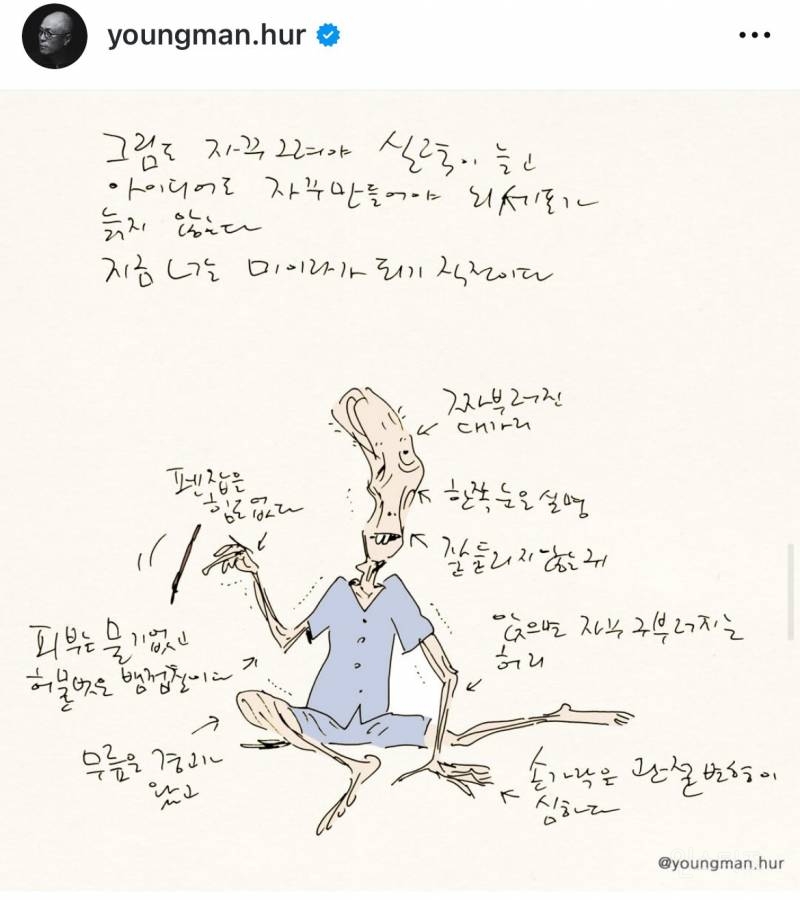 youngman.hur
그림도 자꾸 그려야 실력이 늘고
아이디어도 자꾸 만들어야 뇌세포가
늙지 않는다
지금 너는 미이라가 되기 직전이다
꼬부러진
대가리
펜 잡을
힘도 없다
한쪽 눈은 실명
잘 들리지 않는 귀
피부는 물기 없고
허물 벗은 뱀 껍질이다
앉으면 자꾸 구부러지는
허리
무릎은
않고
손가락은 관절 변형이
심하다
@youngman.hur